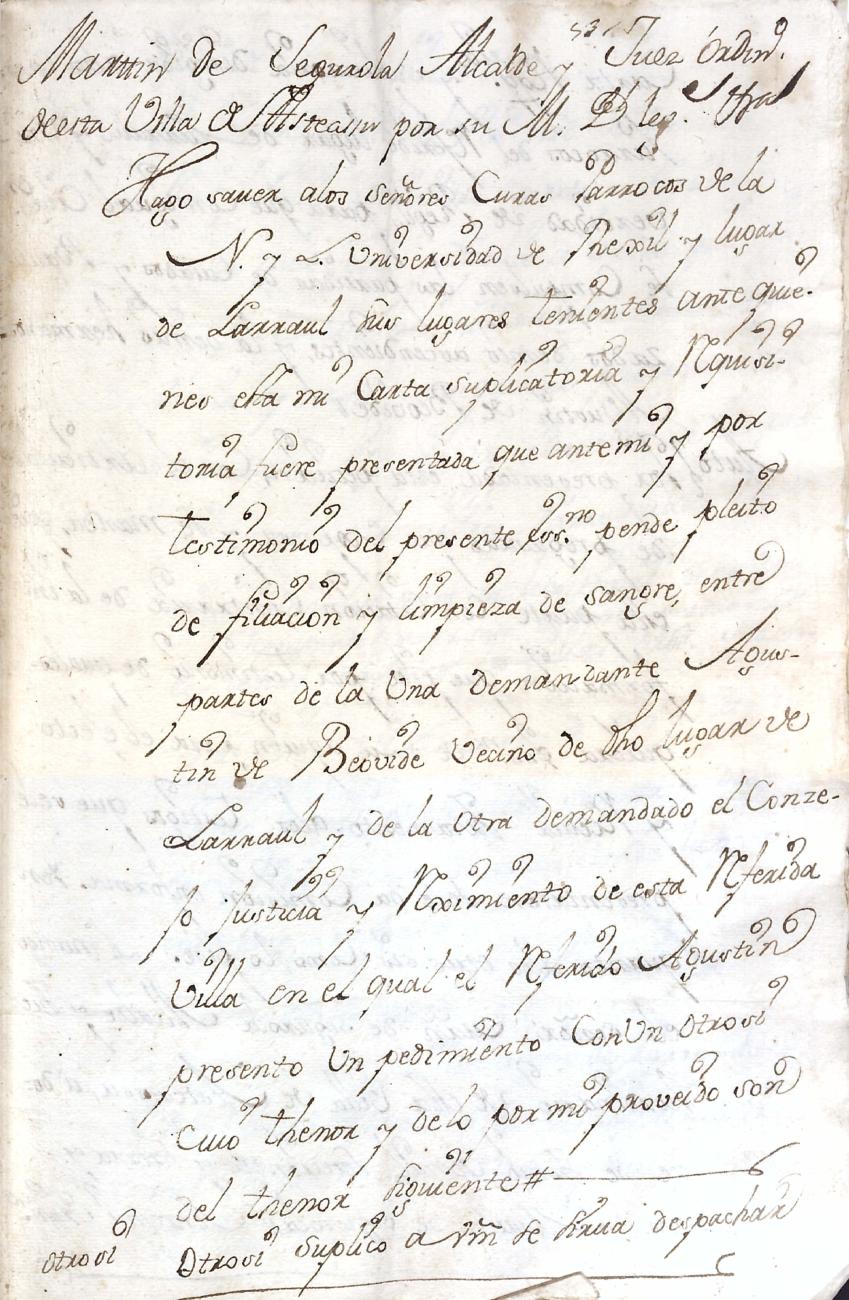 Marttin de Segurola Alcalde y Juez órdin.º
deesta Villa de Asteassu por su M. D. leg.
Hago saver alos señores Curas Parrocos de la
N. y L. Universidad de Rexil y lugar
de Larraul sus lugares tenientes ante quie-
nes esta mi Carta suplicatoria y Rquisi-
toria fuere presentada que antemi y por
testimonio del presente ess.no pende pleito
de filiación y limpieza de sangre, entre
partes de la Una demandante Agus-
tin de Beovide vecino de dho lugar de
Larraul y de la otra demandado el Conze-
jo Justicia y Reximiento de esta Rferida
Villa en el qual el Rferido Agustin
presento Un pedimiento ConUn otrosi
cuio thenor y delo por mi proveido son
del thenor siguiente #
otrosi Otrosi suplico a Vm se sirva despachar